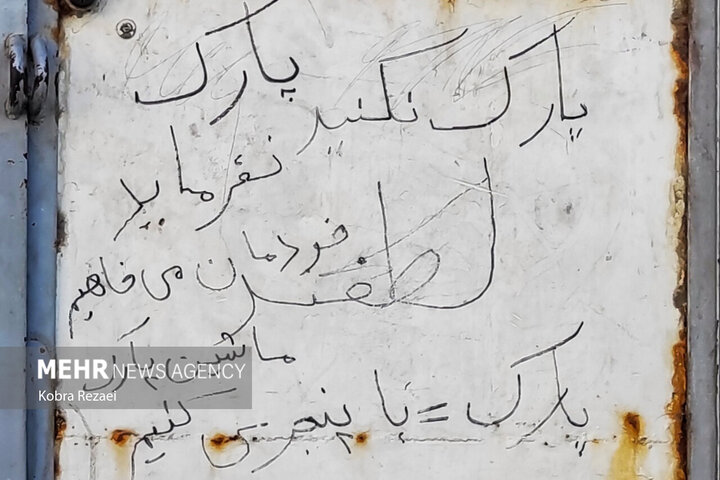 پارک نکنید پارک
نفرماید
لطفن
خودمان می خاهیم
ماشین پارک
کنیم
پارک = با
MEHR NEWS AGENCY
Kobra Rezaei